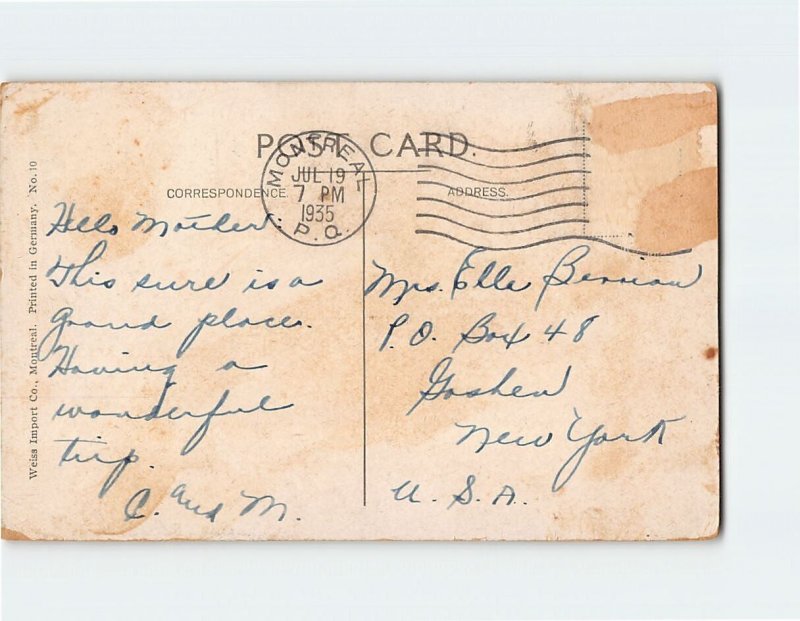 POST CARD.
MONTREAL
JUL 19
7 PM
1935
P.Q.
CORRESPONDENCE.
ADDRESS.
Hello Mother.
This sure is a
grand place.
Having a
wonderful
trip.
C. and M.
Mrs. Elle Berrian
P.O. Box 48
Goshen
New York
U.S.A.
Weiss Import Co., Montreal. Printed in Germany. No. 10